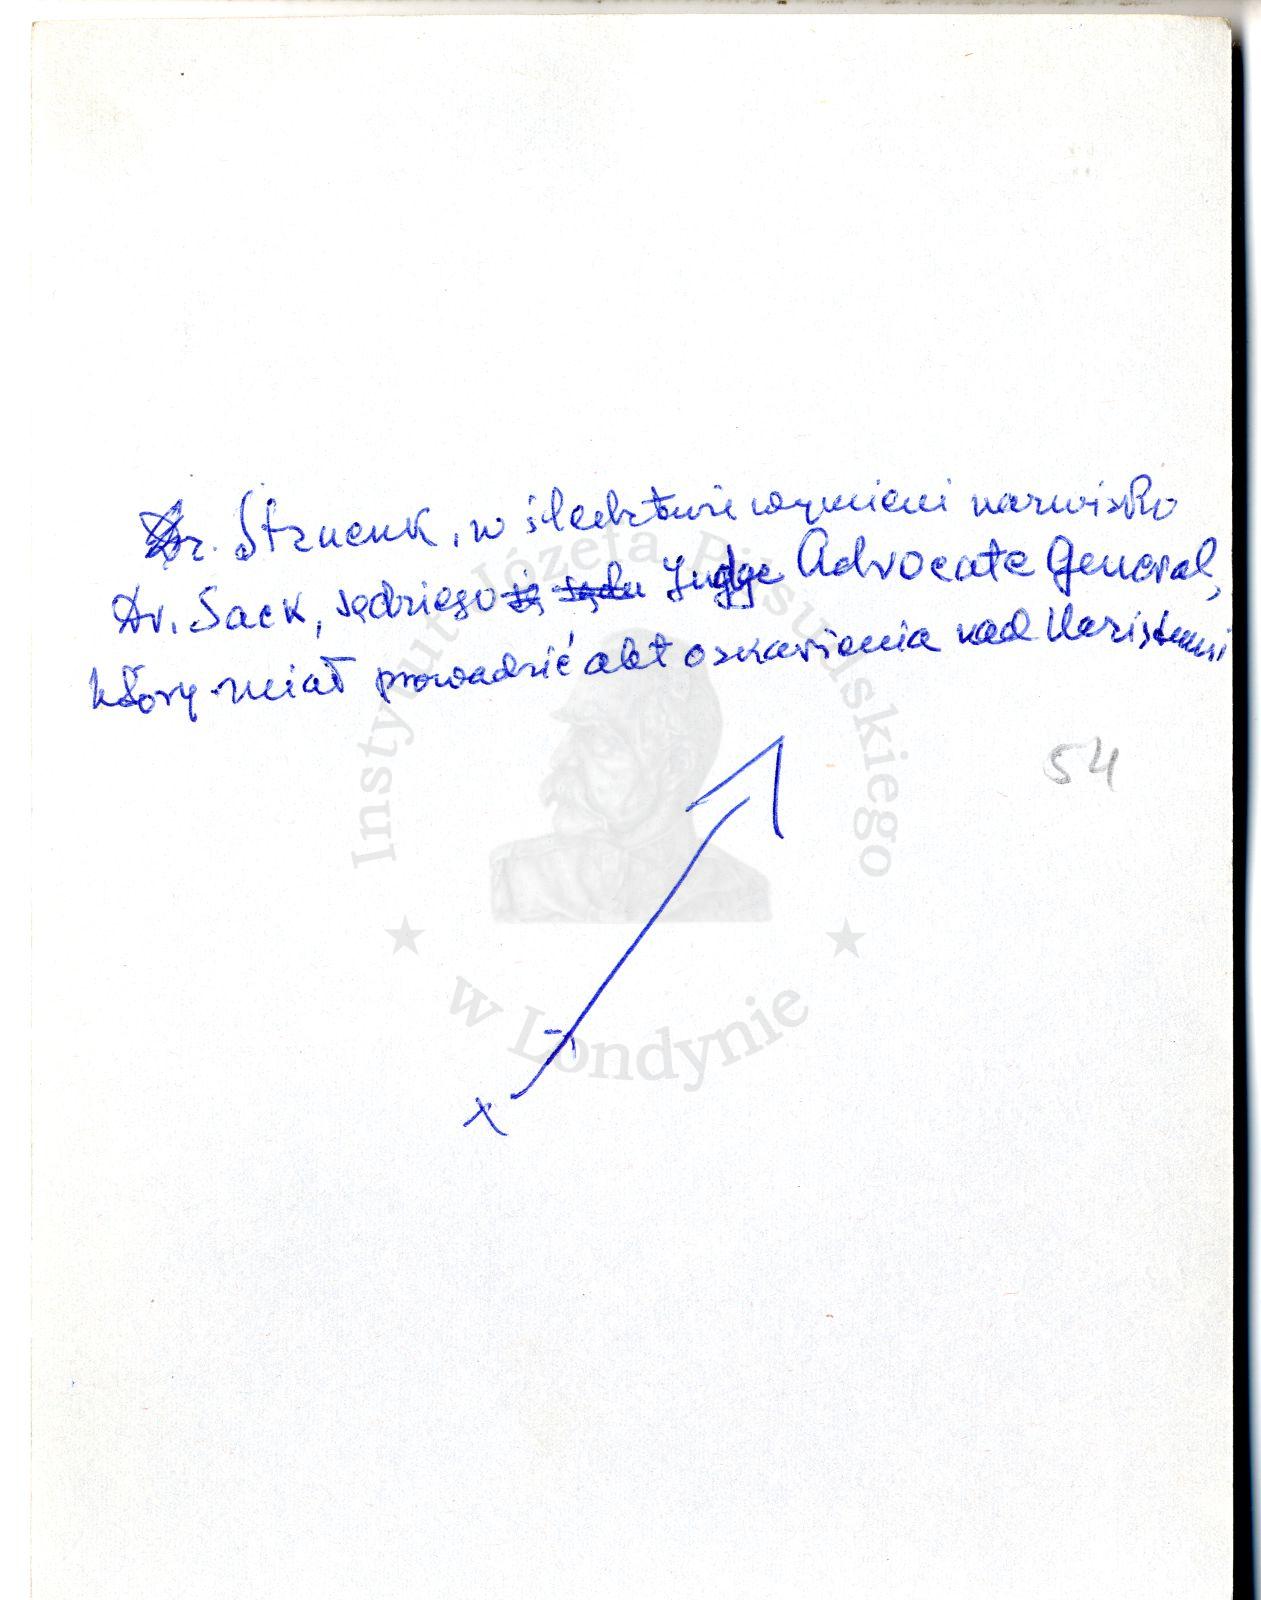 Dr. Strucnk, w śledztwie wymieni nazwisko
Dr. Sack, sędziego Judge Advocate General,
który miał prowadzić akt oskarżenia nad Nazistami
54
x
Instytut Józefa Piłsudskiego
w Londynie